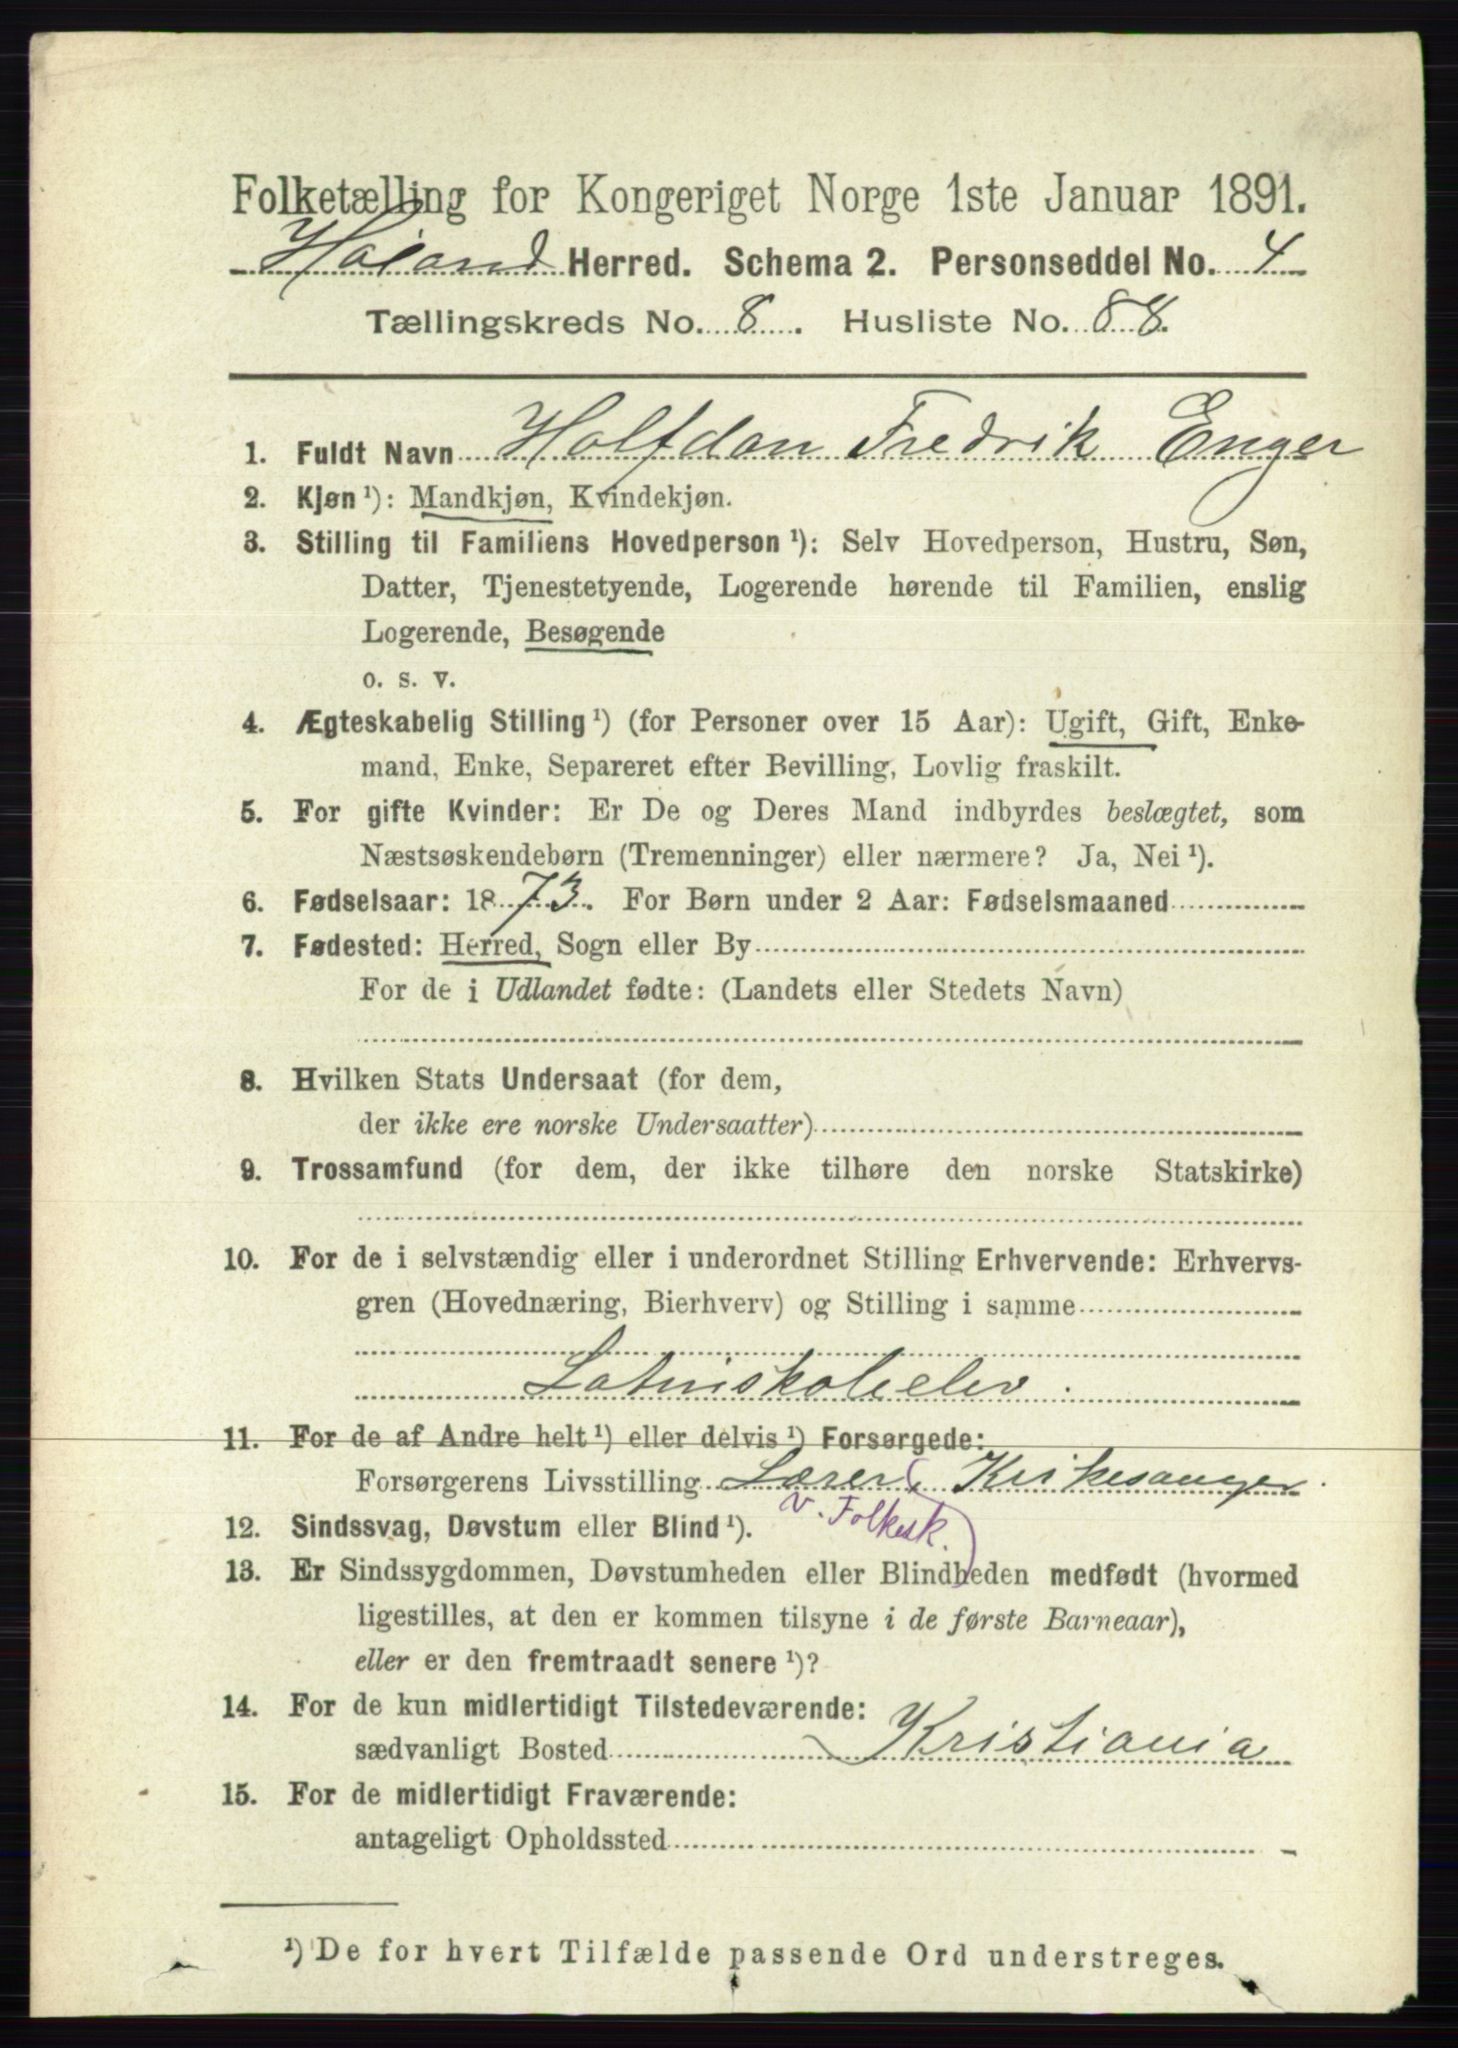 Folketælling for Kongeriget Norge 1ste Januar 1891.
Høland Herred. Schema 2. Personseddel No. 4
Tællingskreds No. 8. Husliste No. 88.
1. Fuldt Navn Halfdan Fredrik Enger
2. Kjøn ¹): Mandkjøn, Kvindekjøn.
3. Stilling til Familiens Hovedperson ¹): Selv Hovedperson, Hustru, Søn,
Datter, Tjenestetyende, Logerende hørende til Familien, enslig
Logerende, Besøgende
o. s. v.
4. Ægteskabelig Stilling ¹) (for Personer over 15 Aar): Ugift, Gift, Enke-
mand, Enke, Separeret efter Bevilling, Lovlig fraskilt.
5. For gifte Kvinder: Er De og Deres Mand indbyrdes beslægtet, som
Næstsøskendebørn (Tremenninger) eller nærmere? Ja, Nei ¹).
6. Fødselsaar: 1873. For Børn under 2 Aar: Fødselsmaaned
7. Fødested: Herred, Sogn eller By
For de i Udlandet fødte: (Landets eller Stedets Navn)
8. Hvilken Stats Undersaat (for dem,
der ikke ere norske Undersaatter)
9. Trossamfund (for dem, der ikke tilhøre den norske Statskirke)
10. For de i selvstændig eller i underordnet Stilling Erhvervende: Erhvervs-
gren (Hovednæring, Bierhverv) og Stilling i samme
Latinskoleelev.
11. For de af Andre helt ¹) eller delvis ¹) Forsørgede:
Forsørgerens Livsstilling Lærer, Kirkesanger
v. Folkesk.
12. Sindssvag, Døvstum eller Blind ¹).
13. Er Sindssygdommen, Døvstumheden eller Blindheden medfødt (hvormed
ligestilles, at den er kommen tilsyne i de første Barneaar),
eller er den fremtraadt senere ¹)?
14. For de kun midlertidigt Tilstedeværende:
sædvanligt Bosted Kristiania
15. For de midlertidigt Fraværende:
antageligt Opholdssted
¹) De for hvert Tilfælde passende Ord understreges.